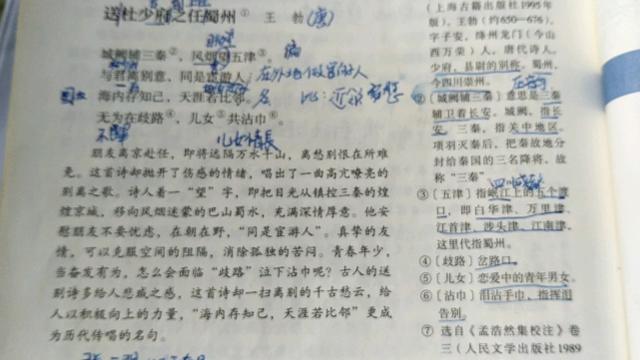 送杜少府之任蜀州① 王勃(唐)
城阙辅三秦②，风烟望五津③。
与君离别意，同是宦游人。
在外地做官的人
海内存知己，天涯若比邻。
比：近
无为在歧路④，儿女⑤共沾巾⑥。
不要
儿女情长
朋友离京赴任，即将远隔万水千山，离愁别恨在所难
免。这首诗却抛开了伤感的情绪，唱出了一曲高亢嘹亮的
别离之歌。诗人着一“望”字，即把目光从镇控三秦的煌
煌京城，移向风烟迷蒙的巴山蜀水，充满深情厚意。他安
慰朋友不要忧虑，在朝在野，“同是宦游人”。真挚的友
情，可以克服空间的阻隔，消除孤独的苦闷。青春年少，
当奋发有为，怎么会面临“歧路”泣下沾巾呢？古人的送
别诗多给人悲戚之感，这首诗却一扫离别的千古愁云，给
人以积极向上的力量，“海内存知己，天涯若比邻”更成
为历代传唱的名句。
(上海古籍出版社1995年
版)。王勃(约650—676)，
字子安，绛州龙门(今山
西万荣)人，唐代诗人。
少府，县尉的别称。蜀州，
今四川崇州。
②〔城阙辅三秦〕意思是三秦
辅卫着长安。城阙，指长
安。三秦，指关中地区。
项羽灭秦后，把秦故地分
封给秦国的三名降将，故
称“三秦”。
③〔五津〕指岷江上的五个渡
口，即白华津、万里津、
江首津、涉头津、江南津。
这里代指蜀州。
④〔歧路〕岔路口。
⑤〔儿女〕恋爱中的青年男女。
⑥〔沾巾〕泪沾手巾，指挥泪
告别。
⑦ 选自《孟浩然集校注》卷
三(人民文学出版社1989